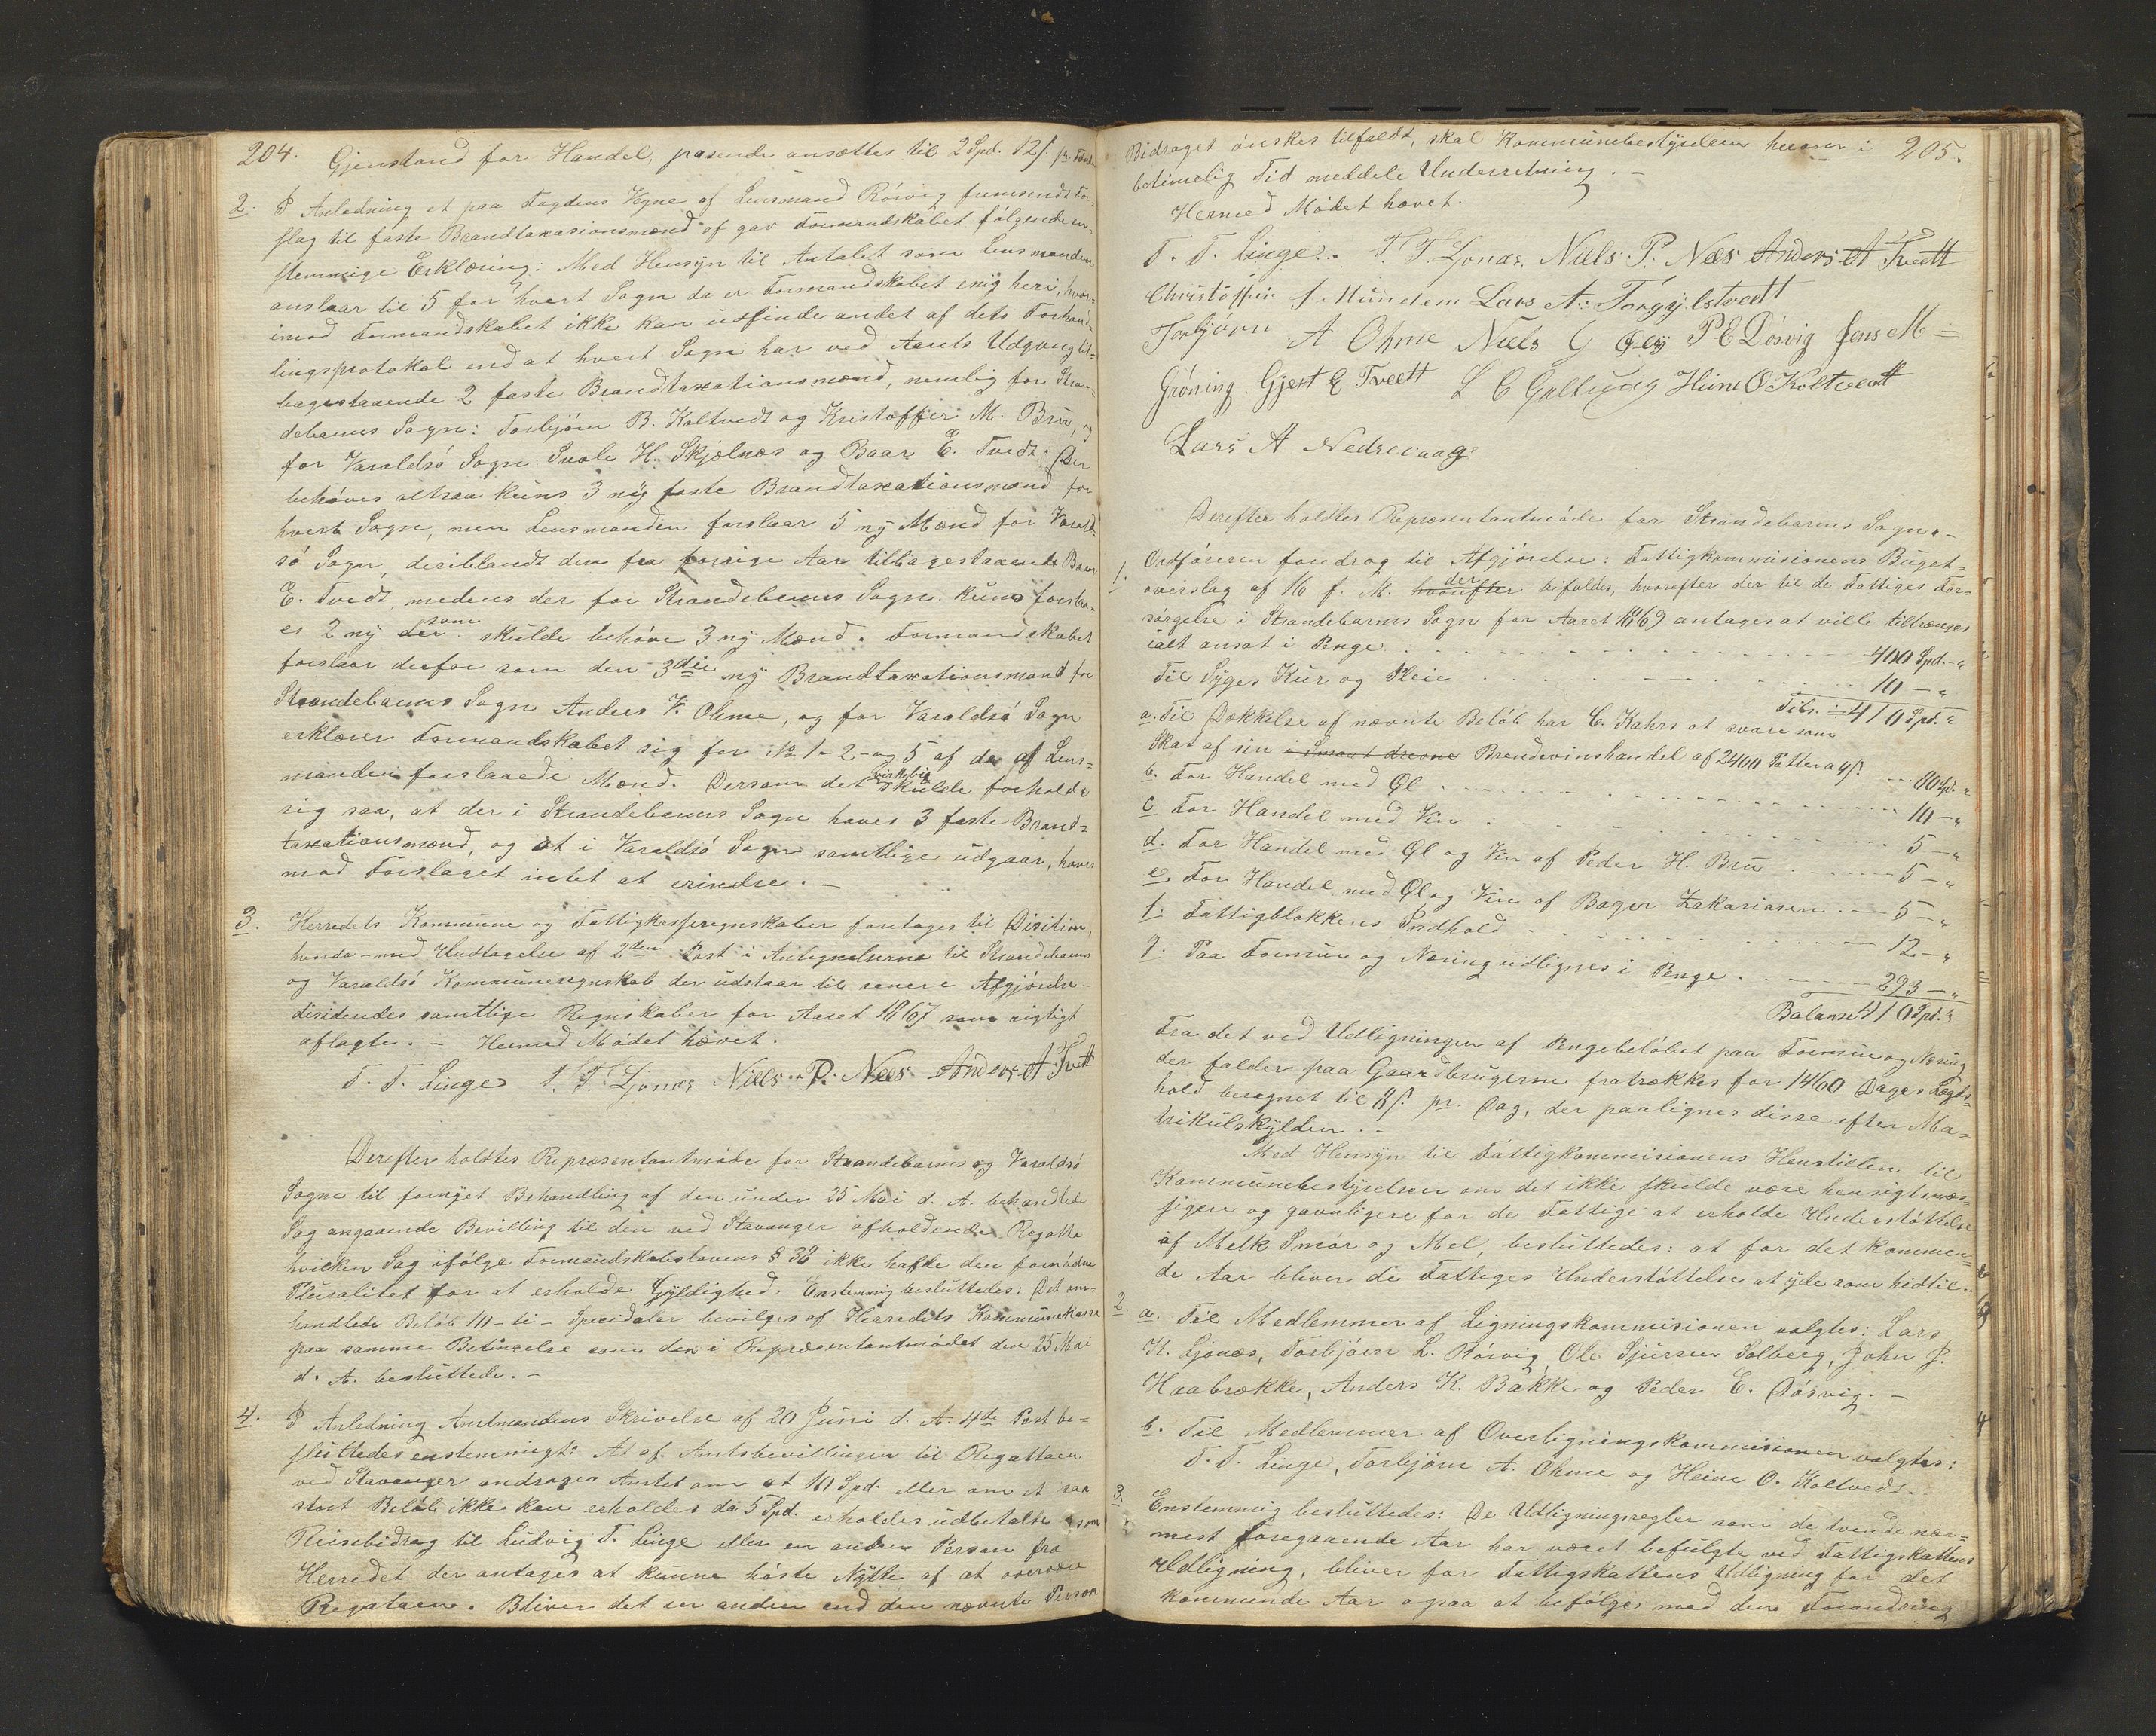 204.
Gjenstand for Handel, pasende ansættes til 2 Spd. 12 s. pr. Tønde
2. I Anledning et paa Fogdens Vegne af Lensmand Rörvig fremsendt For-
slag til faste Brandtaxasionsmænd af gav Formandskabet fölgende en-
stemmige Erklæring: Med Hensyn til Antalet som Lensmanden
anslaar til 5 for hvert Sogn da er Formandskabet enig heri, hvor-
imod Formandskabet ikke kan udfinde andet af dets Forhand-
lingsprotokol end at hvert Sogn har ved Aarets Udgang til-
bagestaaende 2 faste Brandtaxationsmænd, nemlig for Stran-
debarms Sogn: Torbjörn B. Koltvedt og Kristoffer M. Bru, og
for Varaldsö Sogn: Svale H. Skjelnæs og Baar E. Tvedt. Der
behöves altsaa kuns 3 ny faste Brandtaxationsmænd for
hvert Sogn, men Lensmanden forslaar 5 ny Mænd for Varald-
sö Sogn, deriblandt den fra forrige Aar tilbagestaaende Baar
E. Tvedt, medens der for Strandebarms Sogn kuns forslaa-
es 2 ny der som skulde behöve 3 ny Mænd. Formandskabet
forslaar derfor som den 3die ny Brandtaxationsmand for
Strandebarms Sogn Anders V. Ohme, og for Varaldsö Sogn
erklærer Formandskabet sig for No 1- 2- og 5 af de af Lens-
manden forslaaede Mænd. Dersom det virkelig skulde forholde
sig saa, at der i Strandebarms Sogn haves 3 faste Brand-
taxationsmænd, og at i Varaldsö Sogn samtlige udgaar, haves
mod Forslaget intet at erindre. -
3. Herredets Kommune og Fattigkasseregnskaber foretages til Disition,
hvorda - med Undtagelse af 2den Post i Antegnelserne til Strandebarms
og Varaldsö Kommuneregnskab der udstaar til senere Afgjörelse -
disidendes samtlige Regnskaber for Aaret 1867 som rigtigt
aflagte. - Hermed Mödet hævet.
T. T. Linge T. T. Ljonæs Niels P. Næs Anders A Tvett
Derefter holdtes Repræsentantmöde for Strandebarms og Varaldsö
Sogne til fornyet Behandling af den under 25 Mai d. A. behandlede
Sag angaaende Bevilling til den ved Stavanger afholdende Regatta
hvilken Sag ifölge Formandskabslovens § 38 ikke hafde den fornödne
Pluralitet for at erholde Gyldighed. Enstemmig besluttedes: Det om-
handlede Belöb 10 - ti - Specidaler bevilges af Herredets Kommunekasse
paa samme Betingelse som den i Repræsentantmödet den 25 Mai
d. A. besluttede. -
4. I Anledning Amtmandens Skrivelse af 20 Juni d. A. 4de Post be-
sluttedes enstemmigt: At af Amtsbevillingen til Regattaen
ved Stavanger andrages Amtet om at 10 Spd. eller om et saa
stort Belöb ikke kan erholdes da 5 Spd. erholdes udbetalte som
Reisebidrag til Ludvig T. Linge eller en anden Person fra
Herredet der antages at kunne höste Nytte af at overvære
Regattaen. Bliver det en anden end den nævnte Person
205.
Bidraget önskes tilfaldt, skal Kommunebestyrelsen herom i
betimelig Tid meddele Underretning. -
Hermed Mödet hævet.
T. T. Linge. T. T. Ljonæs. Niels P. Næs Anders A Tvett
Christoffer J Mundem Lars A: Torgylstvedt
Torbjörn A Ohme Niels P E Dösvig Jens M =
Gröning Gjert E Tveett L C Gulltung Heine O Koltvedt
Lars A Nedrevaag
Derefter holdtes Repræsentantmöde for Strandebarms Sogn. -
1. Ordföreren foredrog til Afgjörelse: Fattigkommisionens Buget-
overslag af 16 f. M. hvorefter der bifaldes, hvorefter der til de Fattiges For-
sörgelse i Strandebarms Sogn for Aaret 1869 antages at ville tiltrænges
ialt ansat i Penge . . . 400 Spd. - "
Til Syges Kur og Pleie . . . 10 - "
Tils. = 410 Spd. "
a. Til Dækkelse af nævnte Belöb har C. Kahrs at svare som
Skat af sin i Smaat drevne Brændevinshandel af 2400 Potter a 4 s. . . . 80 Spd. - "
b. For Handel med Øl . . . 10 - "
c For Handel med Vin . . . 5 - "
d. For Handel med Øl og Vin af Peder H. Bru . . . 5 - "
e. For Handel med Øl og Vin af Bager Zakariasen . - 5 - "
f. Fattigblokkens Indhold . . . 12 - "
g. Paa Formue og Næring udlignes i Penge . . . 293 - "
Balanse 410 Spd. "
Fra det ved Udligningen af Pengebelöbet paa Formue og Næring
der falder paa Gaardbrugerne fratrækkes for 1460 Dages Lægts-
hold beregnet til 8 s. pr. Dag, der paalignes disse efter Ma-
trikulskylden. -
Med Hensyn til Fattigkommisionens Henstillen til
Kommunebestyrelsen om det ikke skulde være hensigtsmæs-
sigere og gavnligere for de Fattige at erholde Understöttelse
af Melk Smör og Mel, besluttedes: at for det kommen-
de Aar bliver de Fattiges Understöttelse at yde som hidtil. -
2. a. Til Medlemmer af Ligningskommisionen valgtes: Lars
K. Ljonæs, Torbjörn L. Rörvig, Ole Sjursen Solberg, John J.
Haabrække, Anders K. Bakke og Peder E. Dösvig. -
b. Til Medlemmer af Overligningskommisionen valgtes:
T. T. Linge, Torbjörn A. Ohme og Heine O. Koltvedt.
3. Enstemmig besluttedes: De Udligningsregler som de tvende nær-
mest foregaaende Aar har været befulgte ved Fattigskattens
Udligning, bliver for Fattigskattens Udligning for det
kommende Aar ogsaa at befölge med den Forandring